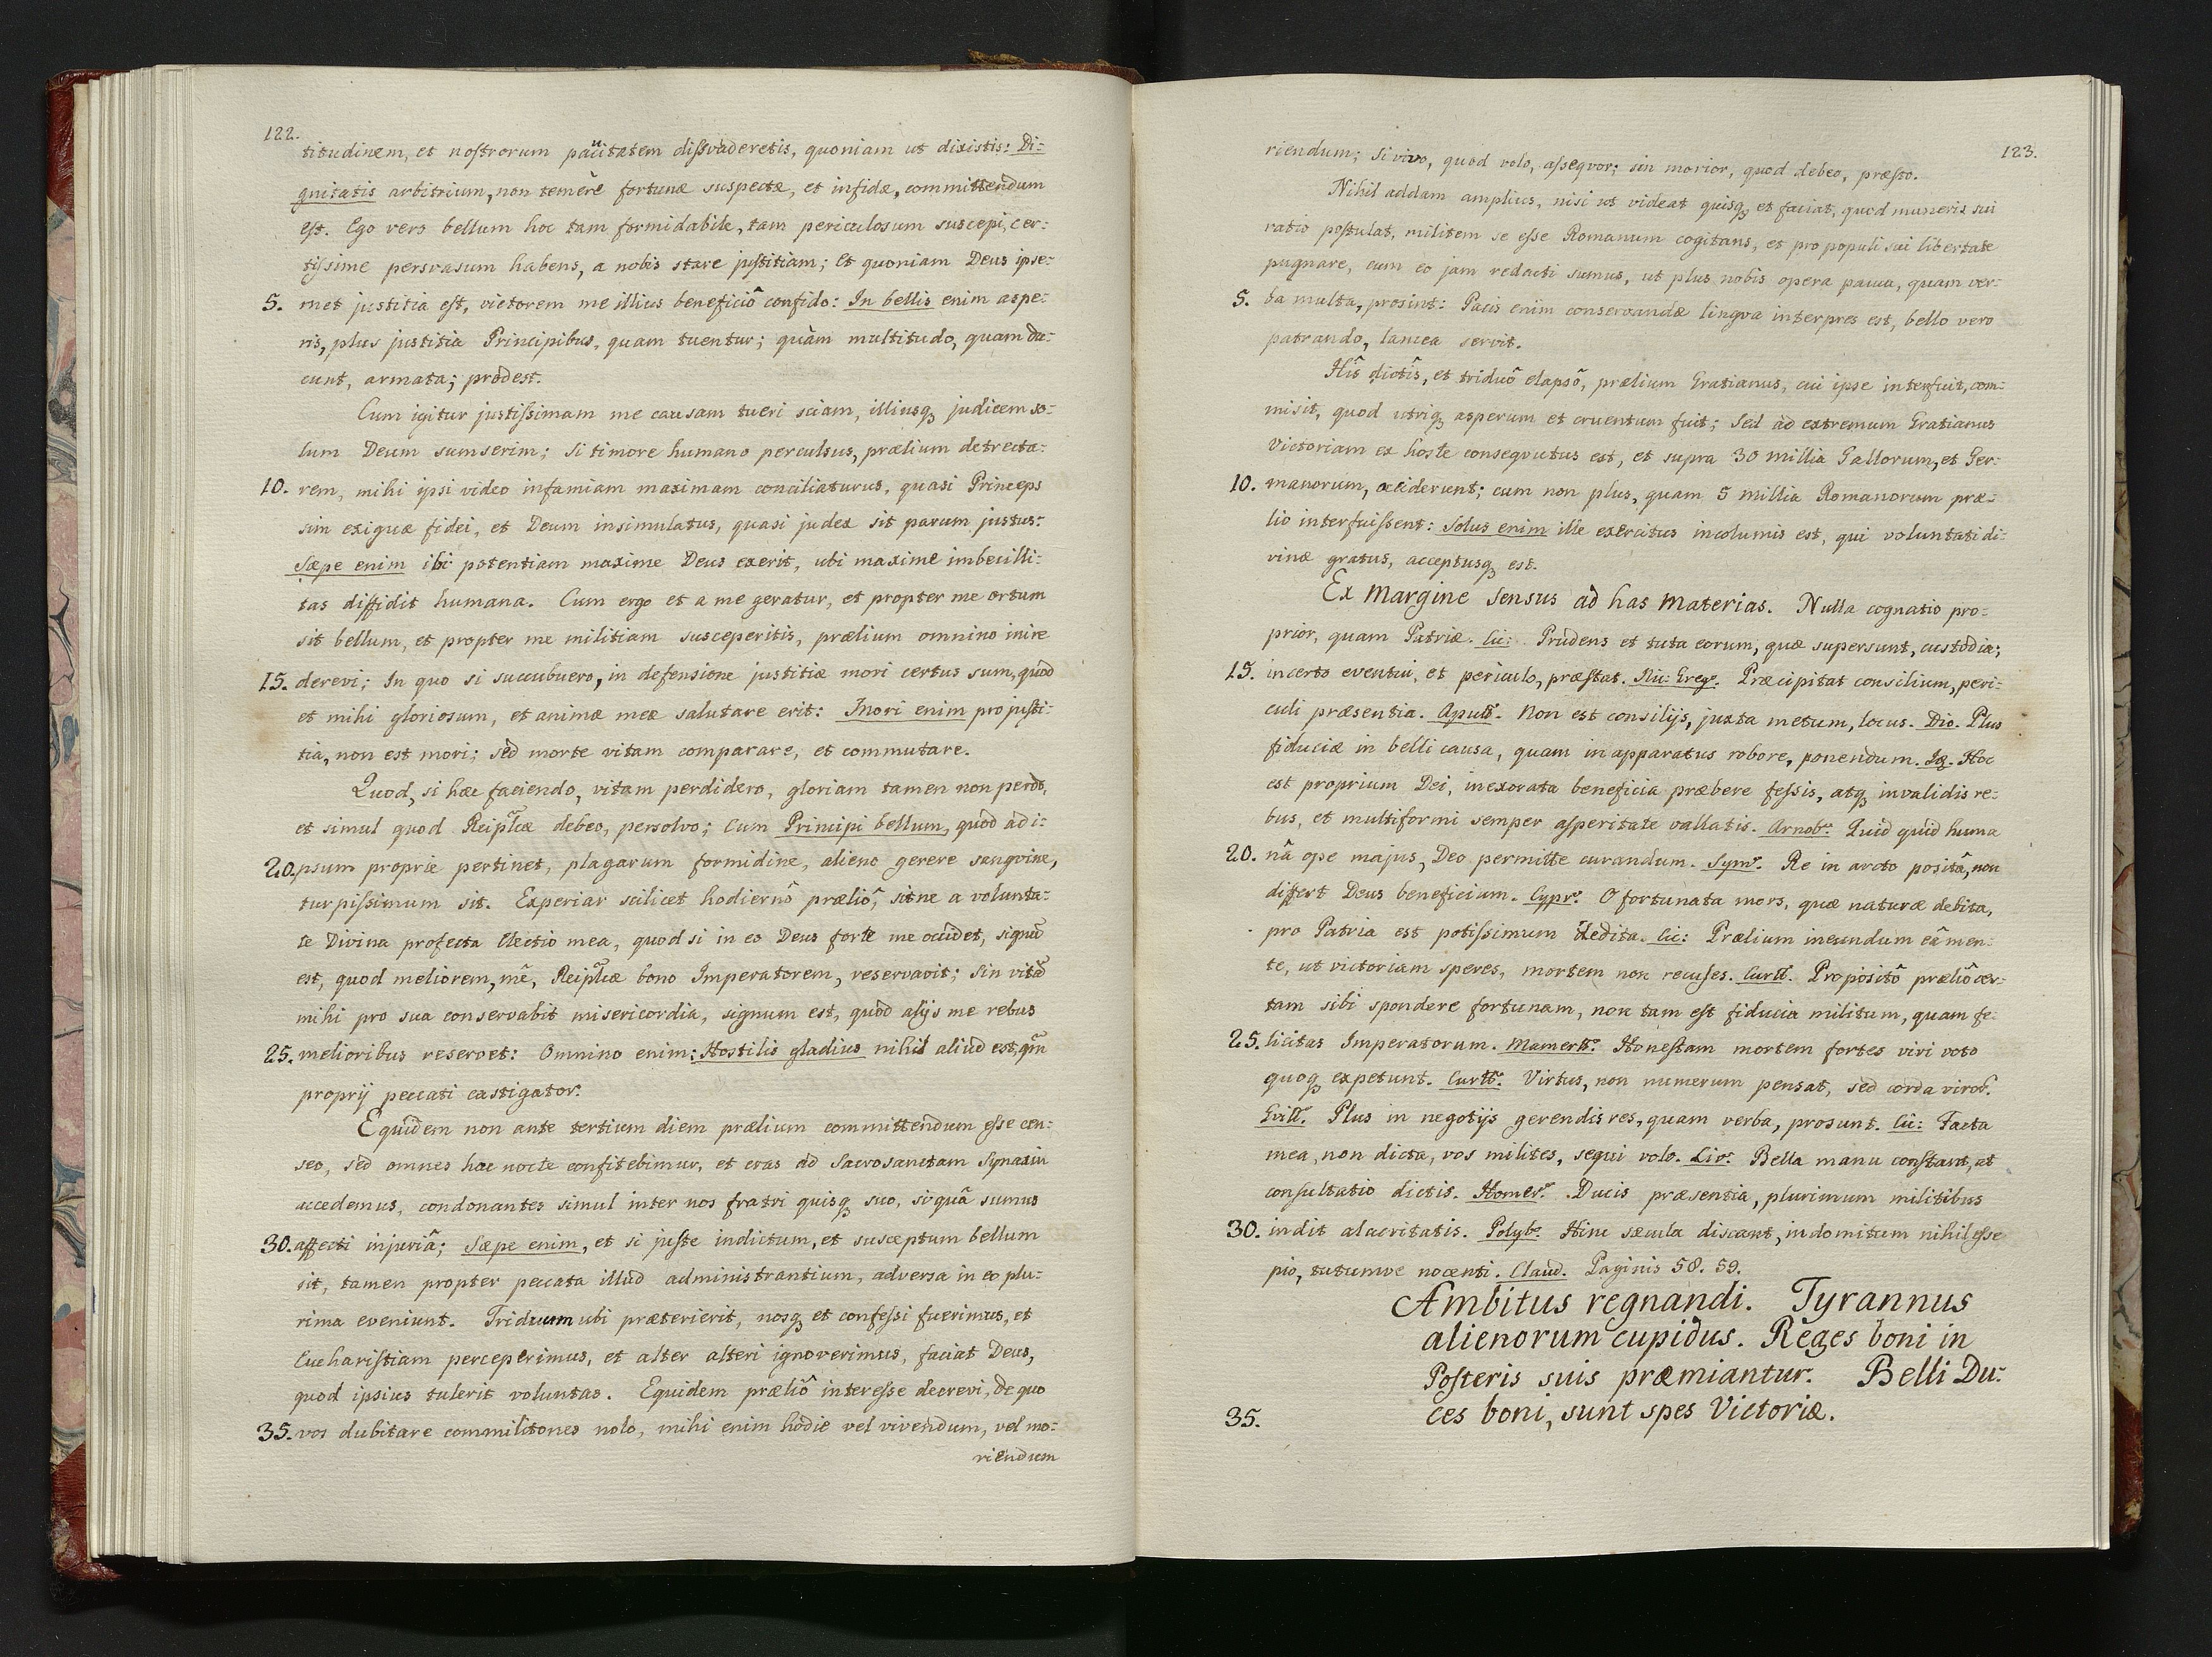 122.
titudinem, et nostrorum paucitatem dissvaderetis, quoniam ut dixistis: Di-
gnitatis arbitrium, non temere fortunæ suspectæ, et infidæ, committendum
est. Ego vero bellum hoc tam formidabile, tam periculosum suscepi, cer-
tissime persvasum habens, a nobis stare justitiam; Et quoniam Deus ipse-
5. met justitia est, victorem me illius beneficiô confido: In bellis enim aspe-
ris, plus justitia Principibus, quam tuentur; quàm multitudo, quam du-
cunt, armata; prodest.
Cum igitur justissimam me causam tueri sciam, illiusq3 judicem so-
lum Deum sumserim; Si timore humano perculsus, prælium detrecta-
10. rem, mihi ipsi video infamiam maximam conciliaturus, quasi Princeps
sim exiguæ fidei, et Deum insimulatus, quasi judex sit parum justus:
Sæpe enim ibi potentiam maxime Deus exerit, ubi maxime imbecilli-
tas diffidit humana. Cum ergo et a me geratur, et propter me ortum
sit bellum, et propter me militiam susceperitis, prælium omnino inire
15. decrevi; In quo si succubuero, in defensione justitiæ mori certus sum, quod
et mihi gloriosum, et animæ meæ salutare erit: Mori enim pro justi-
tia, non est mori; sed morte vitam comparare, et commutare.
Quod, si hæc faciendo, vitam perdidero, gloriam tamen non perdo,
et simul quod Reiplĩcæ debeo, persolvo; Cum Principi bellum, quod ad i-
20. psum proprie pertinet, plagarum formidine, alieno gerere sangvine,
turpissimum sit. Experiar scilicet hodiernô præliô, sitne a volunta-
te Divina profecta Electio mea, quod si in eo Deus forte me occidet, signũ
est, quod meliorem, mê, Reiplĩcæ bono Imperatorem, reservavit; Sin vitã
mihi pro sua conservabit misericordia, signum est, quod alijs me rebus
25. melioribus reservet: Omnino enim: Hostilis gladius nihil aliud est, qm̃
proprij peccati castigator.
Equidem non ante tertium diem prælium committendum esse cen-
seo, sed omnes hac nocte confitebimur, et cras ad Sacrosanctam Synaxin
accedemus, condonantes simul inter nos fratri quisq3 suo, si quâ sumus
30. affecti injuriâ; Sæpe enim, et si juste indictum, et susceptum bellum
sit, tamen propter peccata illud administrantium, adversa in eo plu-
rima eveniunt. Triduum ubi præterierit, nosq3 et confessi fuerimus, et
Eucharistiam perceperimus, et alter alteri ignoverimus, faciat Deus,
quod ipsius tulerit voluntas. Equidem præliô interesse decrevi, de quo
35. vos dubitare commilitones nolo, mihi enim hodie vel vivendum, vel mo-
riendum
123.
riendum; Si vivo, quod volo, assequor; sin morior, quod debeo, præsto.
Nihil addam amplius, nisi ut videat quisq3 et faciat, quod muneris sui
ratio postulat, militem se esse Romanum cogitans, et pro populi sui libertate
pugnare, cum eo jam redacti sumus, ut plus nobis opera pauca, quam ver-
5. ba multa, prosint: Pacis enim conservandæ lingva interpres est, bello vero
patrando, lancea servit.
Hîs dictîs, et triduô elapsô, prælium Gratianus, cui ipse interfuit, com-
misit, quod utriq3 asperum et cruentum fuit; Sed ad extremum Gratianus
Victoriam ex hoste consequutus est, et supra 30 millia Gallorum, et Ger-
10. manorum, occiderunt; cum non plus, quam 5 millia Romanorum præ-
lio interfuissent: Solus enim ille exercitus incolumis est, qui voluntati di-
vinæ gratus, acceptusq3 est.
Ex Margine Sensus ad has materias. Nulla cognatio pro-
prior, quam Patriæ. Cic: Prudens et tuta eorum, quæ supersunt, custodia;
15. incerto eventui, et periculo, præstat. Nic: Greg. Præcipitat consilium, peri-
culi præsentia. Apull. Non est consilijs, juxta metum, locus. Dio. Plus
fiduciæ in belli causa, quam in apparatus robore, ponendum. Hoc
est proprium Dei, inexorata beneficia præbere fessis, atq3 invalidis re-
bus, et multiformi semper asperitate vallatis. Arnob. Quid quid huma
20. nâ ope majus, Deo permitte curandum. Sym. Re in arcto positâ, non
differt Deus beneficium. Cypr. O fortunata mors, quæ naturæ debita,
pro Patria est potissimum dedita. Cic: Prælium ineundum eâ men-
te, ut victoriam speres, mortem non recuses. Curtt. Propositô præliô cer-
tam sibi spondere fortunam, non tam est fiducia militum, quam fe-
25. licitas Imperatorum. Mamertt. Honestam mortem fortes viri voto
quoq3 expetunt. Curtt. Virtus, non numerum pensat, sed corda viror.
Gvill. Plus in negotijs gerendis res, quam verba, prosunt. Cic: Facta
mea, non dicta, vos milites, sequi volo. Liv. Bella manu constant, at
consultatio dictis. Homer. Ducis præsentia, plurimum militibus
30. indit alacritatis. Polyb. Hinc sæcula discant, indomitum nihil esse
pio, tutumve nocenti. Claud. Paginis 58. 59.
Ambitus regnandi. Tyrannus
alienorum cupidus. Reges boni in
Posteris suis præmiantur. Belli Du-
35. ces boni, sunt spes Victoriæ.